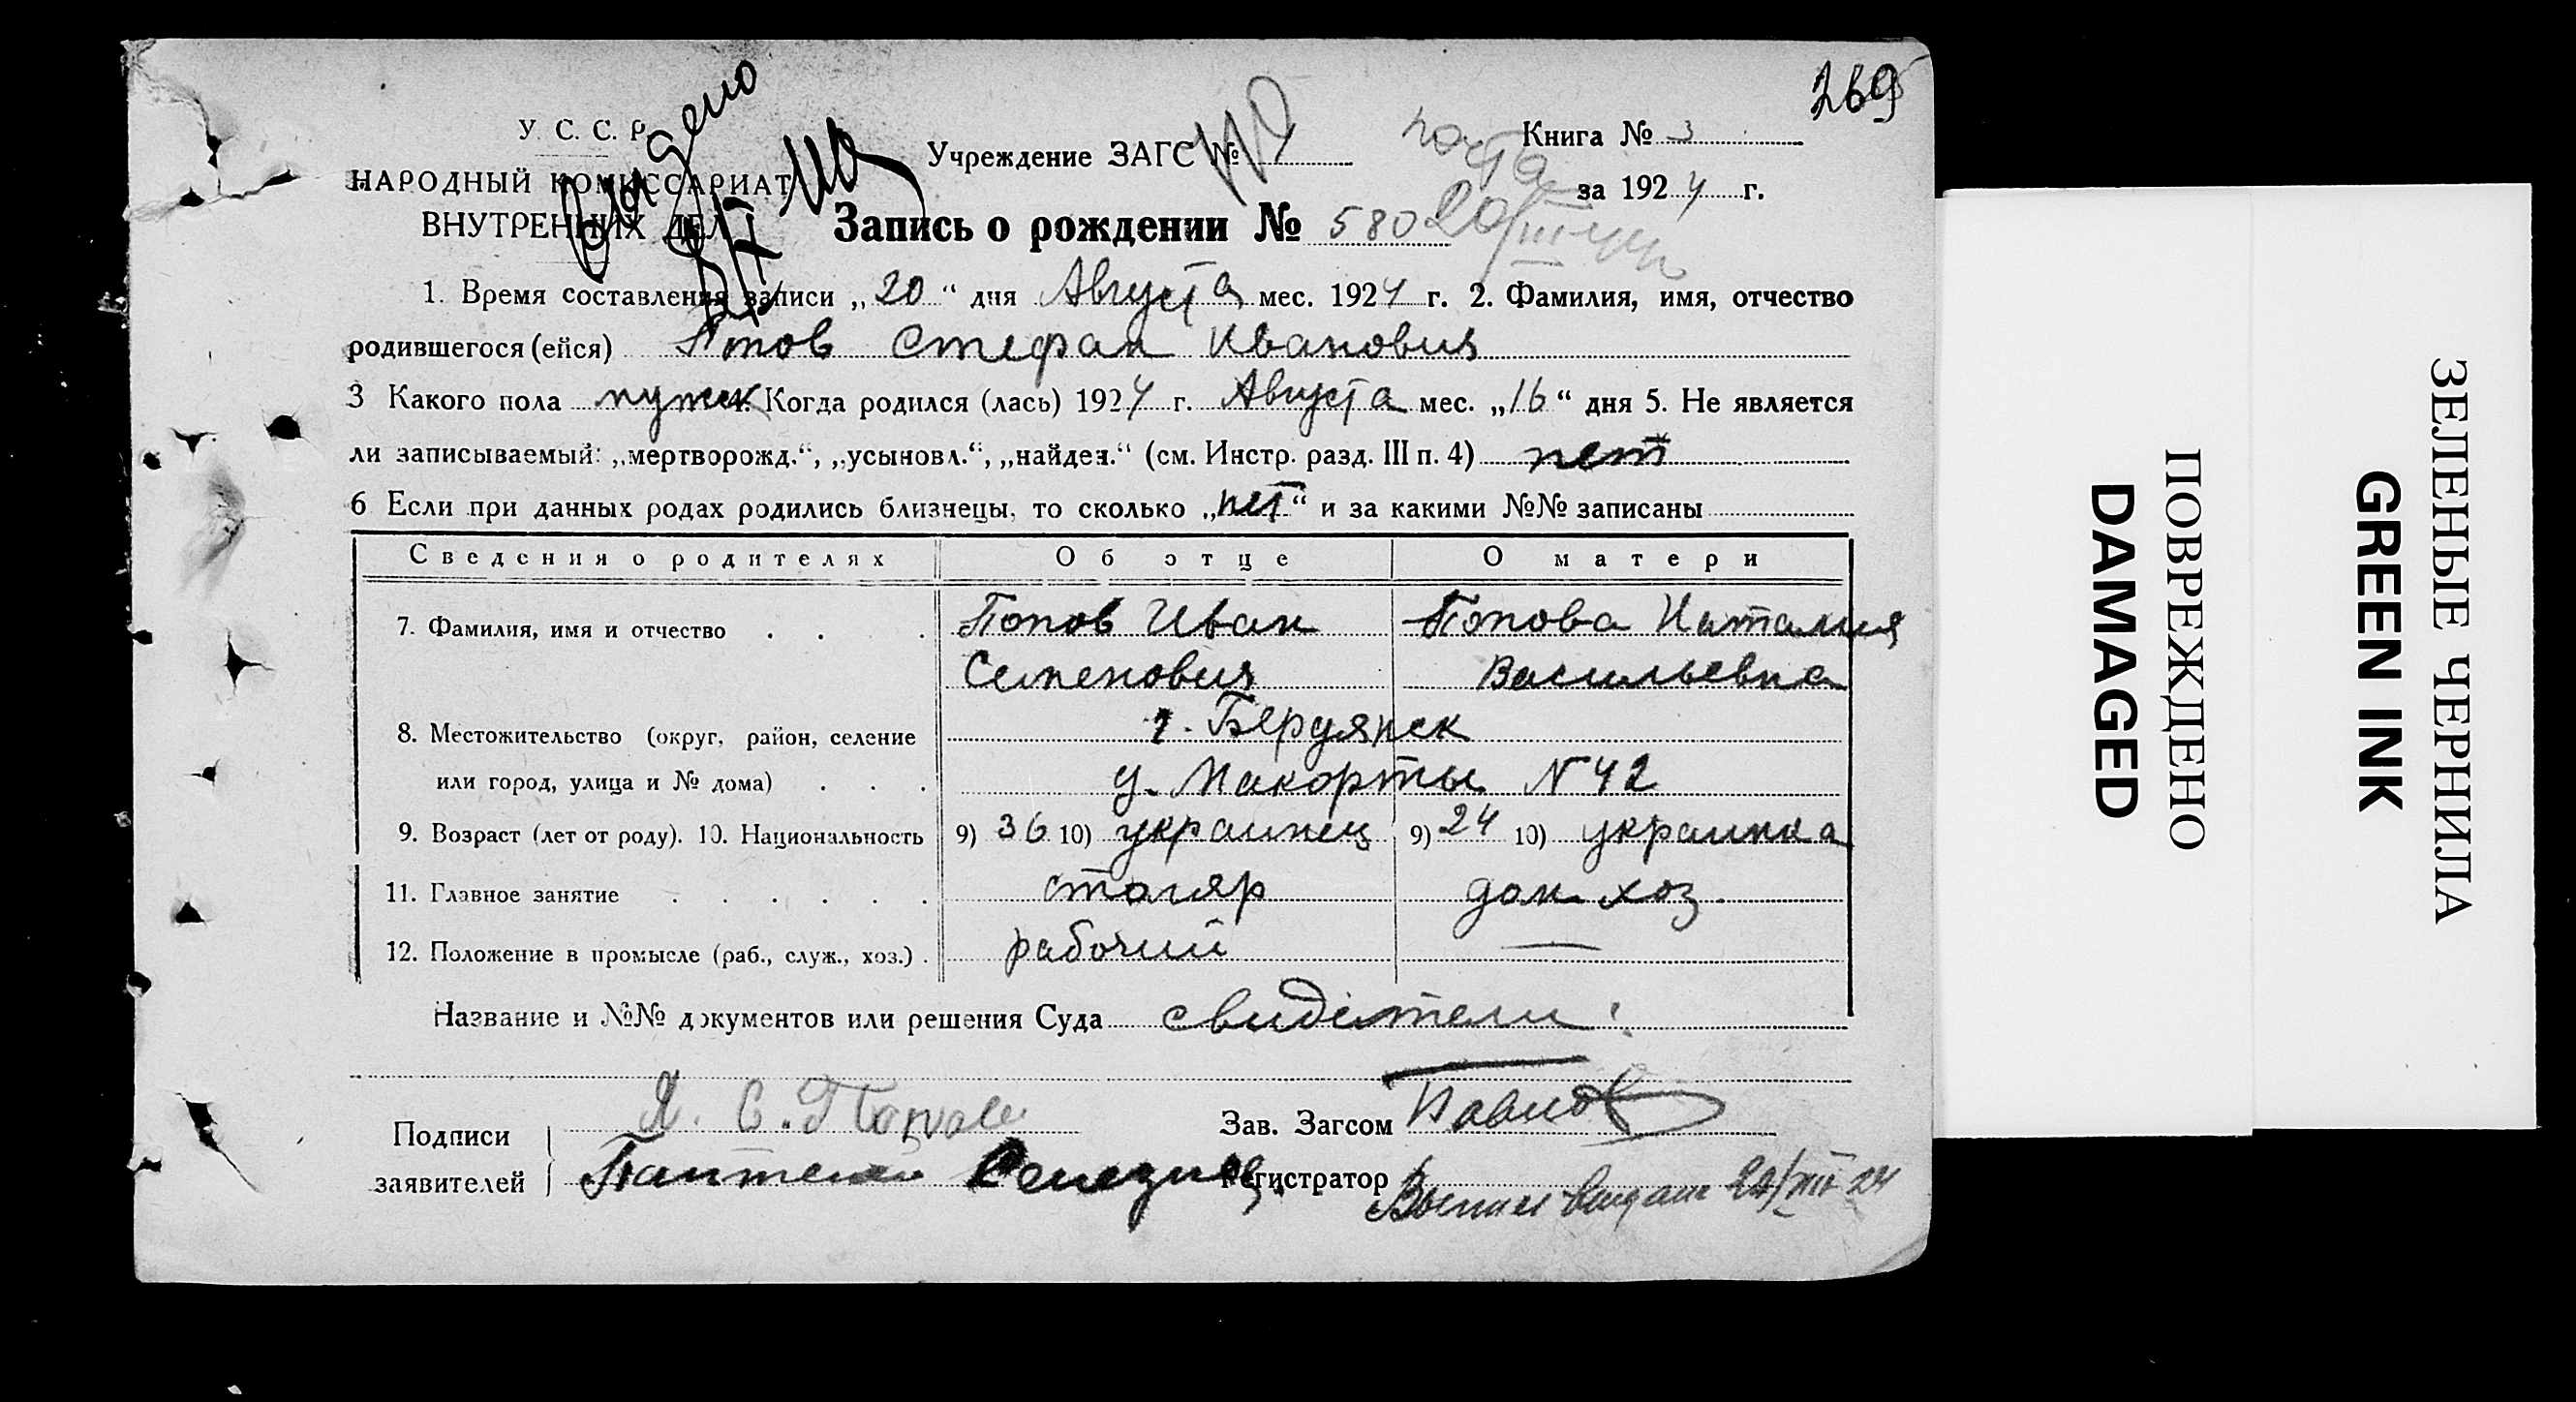 269
У. С. С. Р.
НАРОДНЫЙ КОМИССАРИАТ
ВНУТРЕННИХ ДЕЛ
Выдено
Учреждение ЗАГС №
почта
Книга № 3
за 1924 г.
Запись о рождении № 580
1. Время составления записи „20“ дня Августа мес. 1924 г. 2. Фамилия, имя, отчество
родившегося (ейся) Попов Стефан Иванович
3 Какого пола мужск 4. Когда родился (лась) 1924 г. Августа мес. „16“ дня 5. Не является
ли записываемый: „мертворожд.“, „усыновл.“, „найден.“ (см. Инстр. разд. III п. 4) нет
6 Если при данных родах родились близнецы, то сколько „нет“ и за какими №№ записаны
Сведения о родителях Об отце О матери
7. Фамилия, имя и отчество . . . . Попов Иван Попова Наталия
Семенович Васильевна
8. Местожительство (округ, район, селение г. Бердянск
или город, улица и № дома) . . . у. Макорты N 42
9. Возраст (лет от роду). 10. Национальность 9) 36 10) украинец 9) 24 10) украинка
11. Главное занятие . . . . . . столяр дом. хоз.
12. Положение в промысле (раб., служ., хоз.) . рабочий —
Название и №№ документов или решения Суда свидетели:
Подписи И. С. Попов Зав. Загсом Павлов
заявителей Пантелей Селезнев Регистратор
24
ПОВРЕЖДЕНО
DAMAGED
ЗЕЛЕНЫЕ ЧЕРНИЛА
GREEN INK